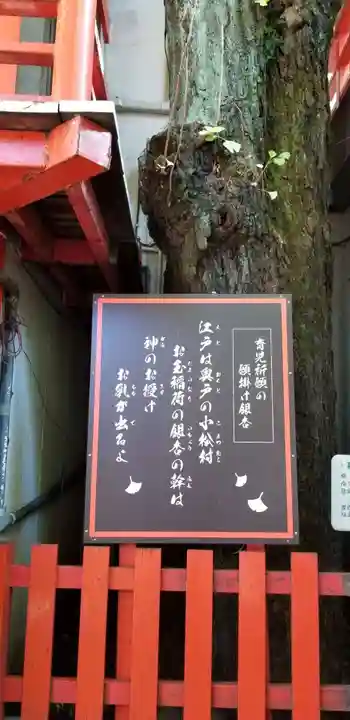 育児祈願の
願掛け銀杏
江戸は奥戸の小松村
お玉稲荷の銀杏の幹は
神のお授け
お乳が出るよ